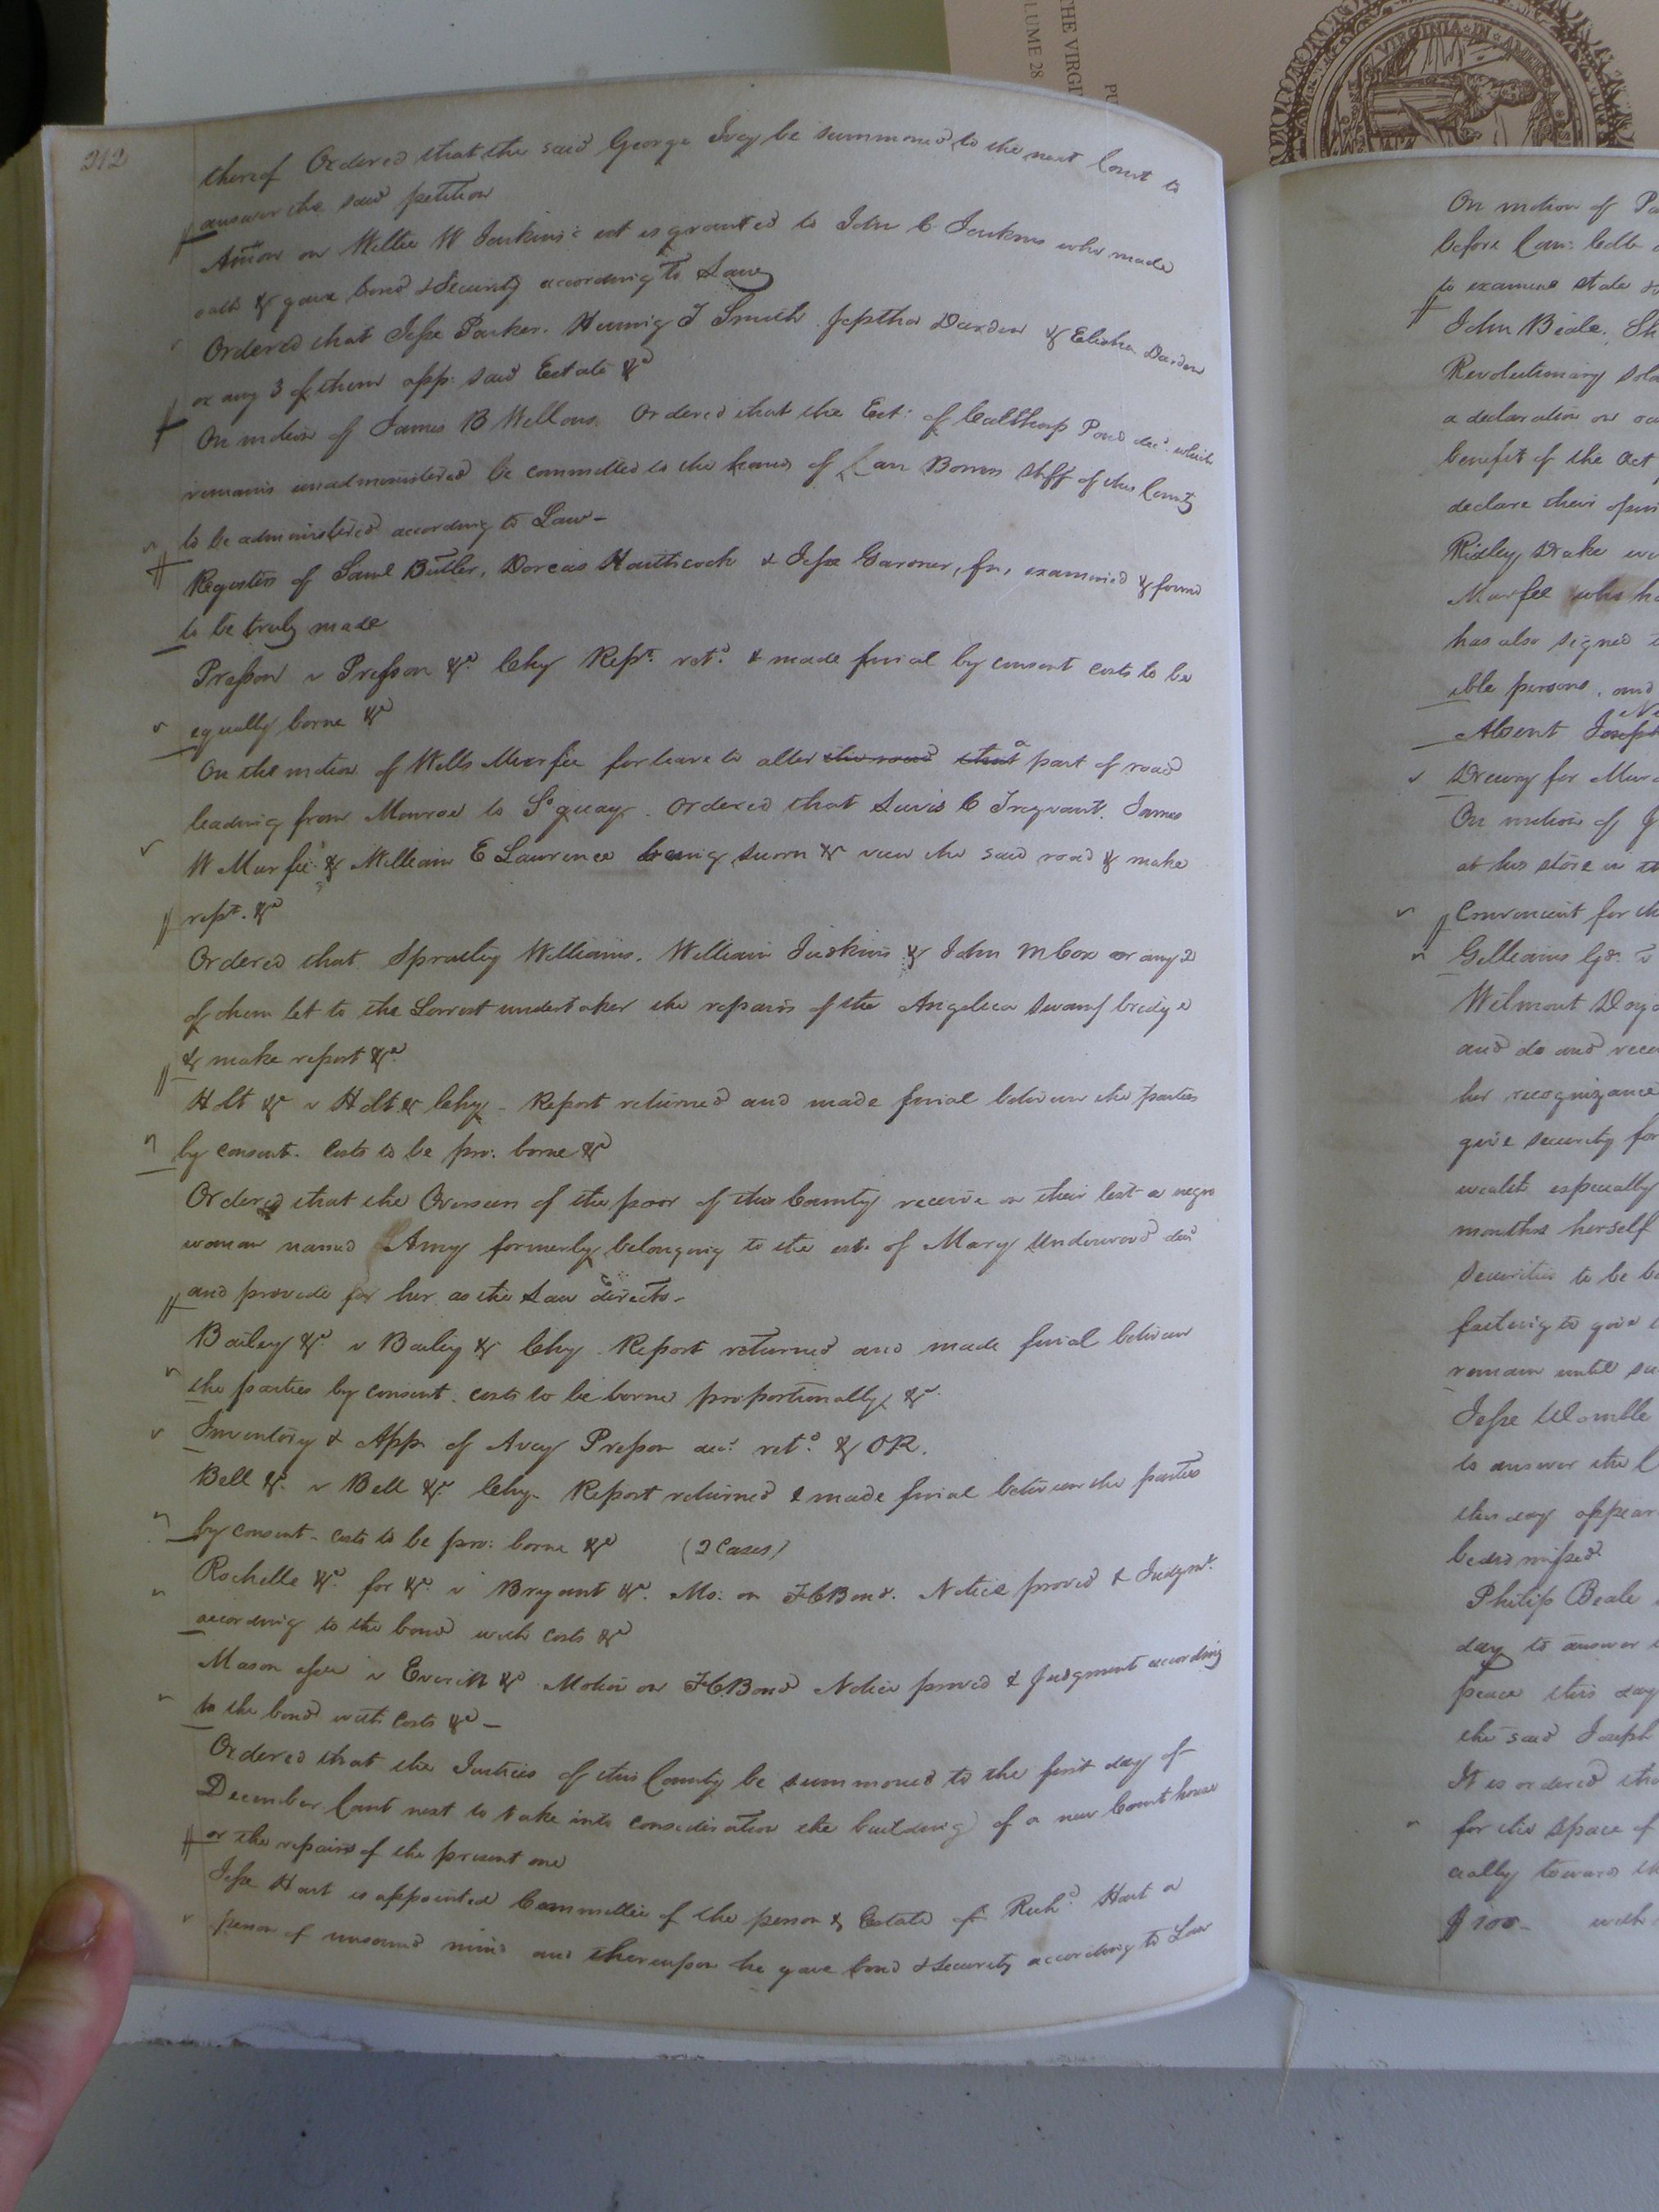 212
thereof Ordered that the said George Ivey be summoned to the next Court to
answer the said petition
Admon on Willie W Jenkins's est is granted to John C. Jenkins who made
oath & gave bond & Security according to Law
Ordered that Jesse Parker, Herring T Smith Jeptha Darden & Elisha Darden
or any 3 of them app. said Estate &c
On motion of James B Mellons Ordered that the Est: of Calthorp Pond decd. which
remains unadministered be committed to the hands of Carr Bowers Shff of this County
to be administered according to Law-
Registers of Saml Butler, Dorcas & Jesse Gardner, fn, examined & found
to be truly made
Presson v Presson &c. Chy Rept. retd. & made final by consent costs to be
equally borne &c
On the motion of Wells Murfee for leave to alter the road that a part of road
leading from Monroe to So quay. Ordered that Lewis C Inquant. James
W Murfee & William E Lawrence being sworn & view the said road & make
rept. &c
Ordered that Spratley Williams, William Judkins & John M Cox or any 2
of them let to the Lowest undertaker the repairs of the Angelica Swamp bridge
& make report &c
Holt & v Holt & Chy - Report returned and made final between the parties
by consent. Costs to be pro: borne &c
Ordered that the Overseers of the poor of this County receive on their list a negro
woman named Amy formerly belonging to the est. of Mary Underwood decd
and provide for her as the Law directs-
Bailey &c. v Bailey & Chy Report returned and made final between
the parties by consent. costs to be borne proportionally &c.
Inventory & App. of Avey Presson decd. retd. & OR.
Bell &c. v Bell &c. Chy- Report returned & made final between the parties
by consent - costs to be pro: borne &c (2 Cases)
Rochelle &c. for &c. v Bryant &c. Mo: on FCBond. Notice proved & Judgmt.
according to the bond with costs &c
Mason v Everitt &c Motion on FCBond Notice proved & Judgment according
to the bond with Costs &c -
Ordered that the Justices of this County be summoned to the first day of
December Court next to take into consideration the building of a new Court house
or the repairs of the present one
Jesse Hart is appointed Committee of the person & Estate of Richd. Hart a
person of unsound mind and thereupon he gave bond & Security according to Law
THE VIRGI
LUME 28
PU
VIRGINIA IN AMERI
On motion of
before
to examine state
John Beale,
Revolutionary
a declaration on
benefit of the Act
declare their
Ridley Drake
Murfee who
has also signed
ible persons, and
Absent Joseph
Drewry for
On motion of
at his store in
Convenient for
Gilliams Gdn. v
Wilmout
and do and
her recognizance
give security for
wealth especially
months herself
Securities to be
failing to give
remain until
Jesse Womble
to answer the
this day
be dismissed.
Philip Beale
day to answer
peace this day
the said Joseph
It is ordered
for the space of
cially towards
$100- with